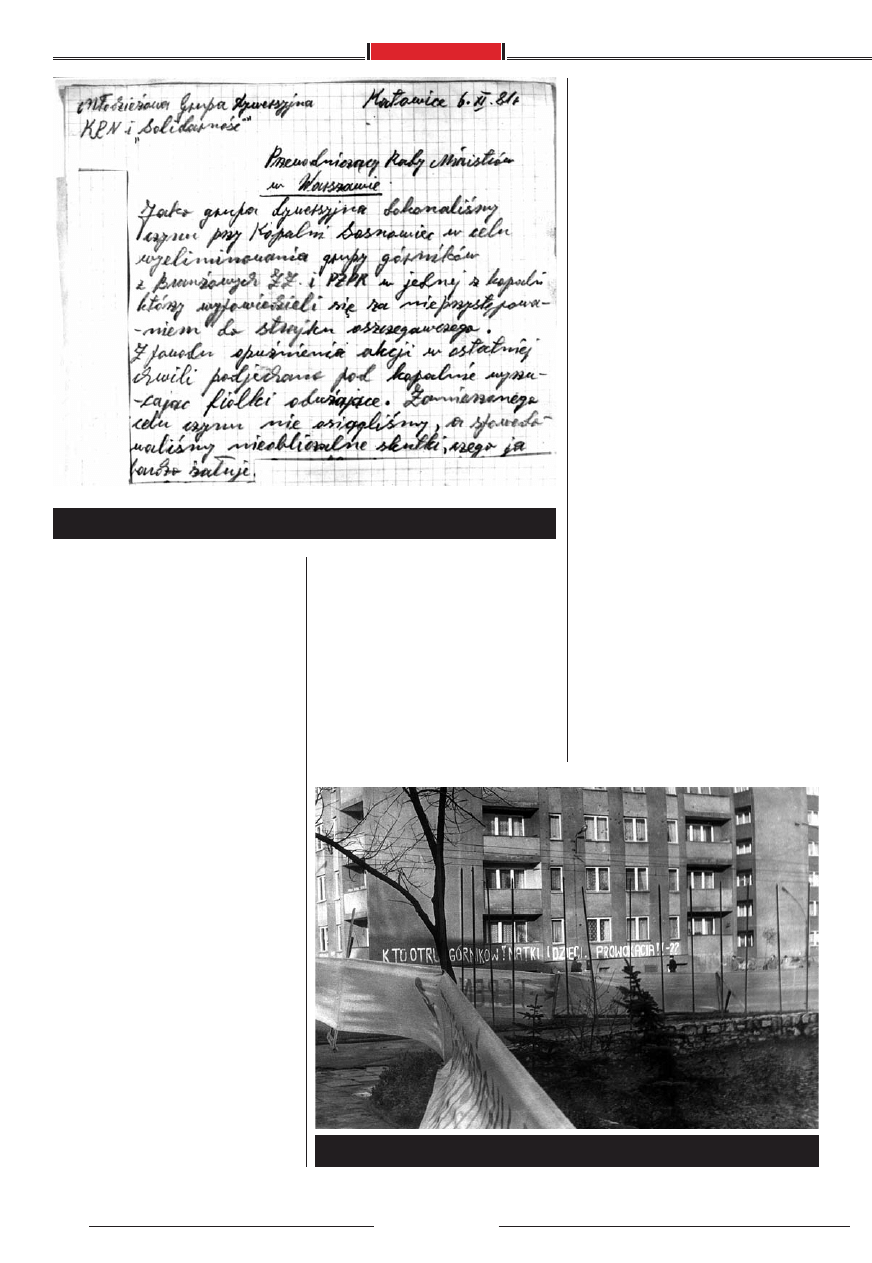 Młodzieżowa Grupa Dywersyjna
Katowice 6. XI. 81r
KPN i „Solidarność"
Przewodniczący Rady Ministrów
w Warszawie
Jako grupa dywersyjna dokonaliśmy
czynu przy Kopalni Sosnowiec w celu
wyeliminowania grupy górników
z Branżowych ZZ. i PZPR w jednej z kopalni
którzy wypowiedzieli się za nieprzystępowa-
-niem do strajku ostrzegawczego.
Z powodu opuźnienia akcji w ostatniej
chwili podjechano pod kopalnie wyrzu-
-cając fiolki odurzające. Zamierzonego
celu czynu nie osiągliśmy, a spowodo-
waliśmy nieobliczalne skutki, czego ja
bardzo żałuję.
KTO OTRUŁ GÓRNIKÓW! MATKI I DZIECI. PROWOKACJA!!-??